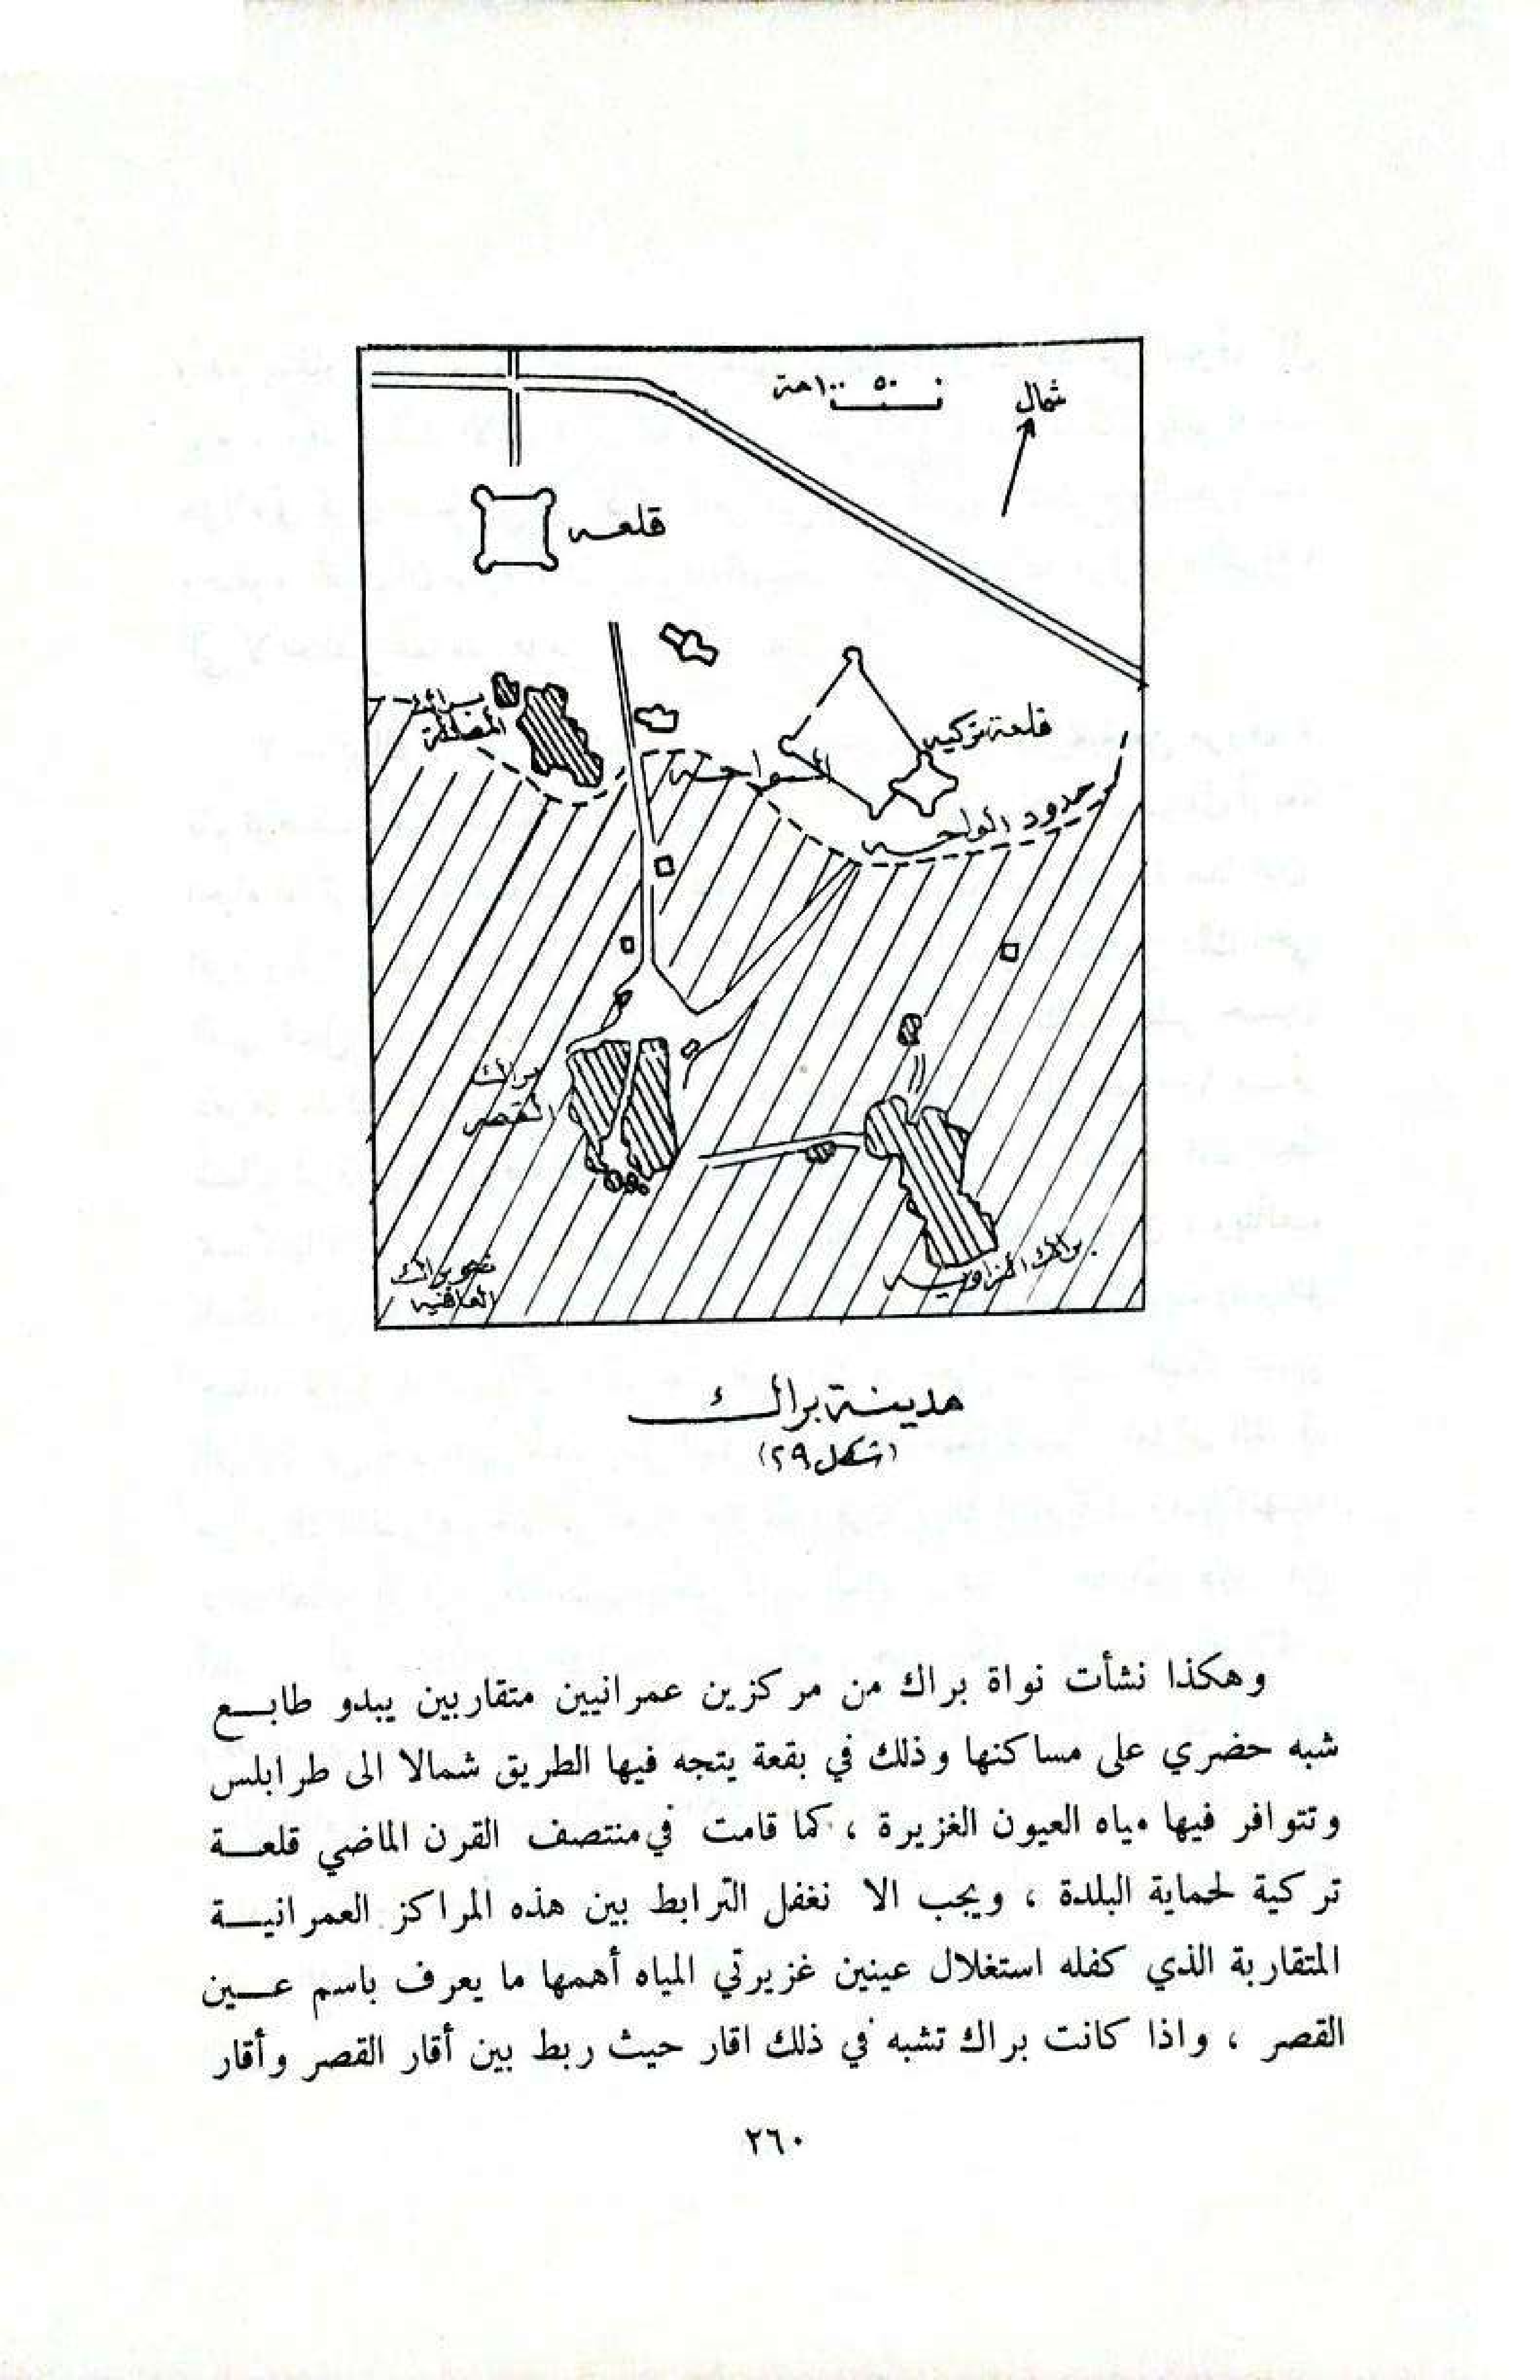 ٠ ٥٠ ١٠٠متر
شمال
قلعه
قلعة تركيه
براك
المضللة
الواحه
حدود الواحه
براك
القصر
براك الزاويه
نحو براك
العافيه
مدينة براك
(شكل ٢٩)
وهكذا نشأت نواة براك من مركزين عمرانيين متقاربين يبدو طابـــع
شبه حضري على مساكنها وذلك في بقعة يتجه فيها الطريق شمالا الى طرابلس
وتتوافر فيها مياه العيون الغزيرة ، كما قامت في منتصف القرن الماضي قلعـــة
تركية لحماية البلدة ، ويجب الا نغفل الترابط بين هذه المراكز العمرانيـــة
المتقاربة الذي كفله استغلال عينين غزيرتي المياه أهمها ما يعرف باسم عـــين
القصر ، واذا كانت براك تشبه في ذلك اقار حيث ربط بين أقار القصر وأقار
٢٦٠